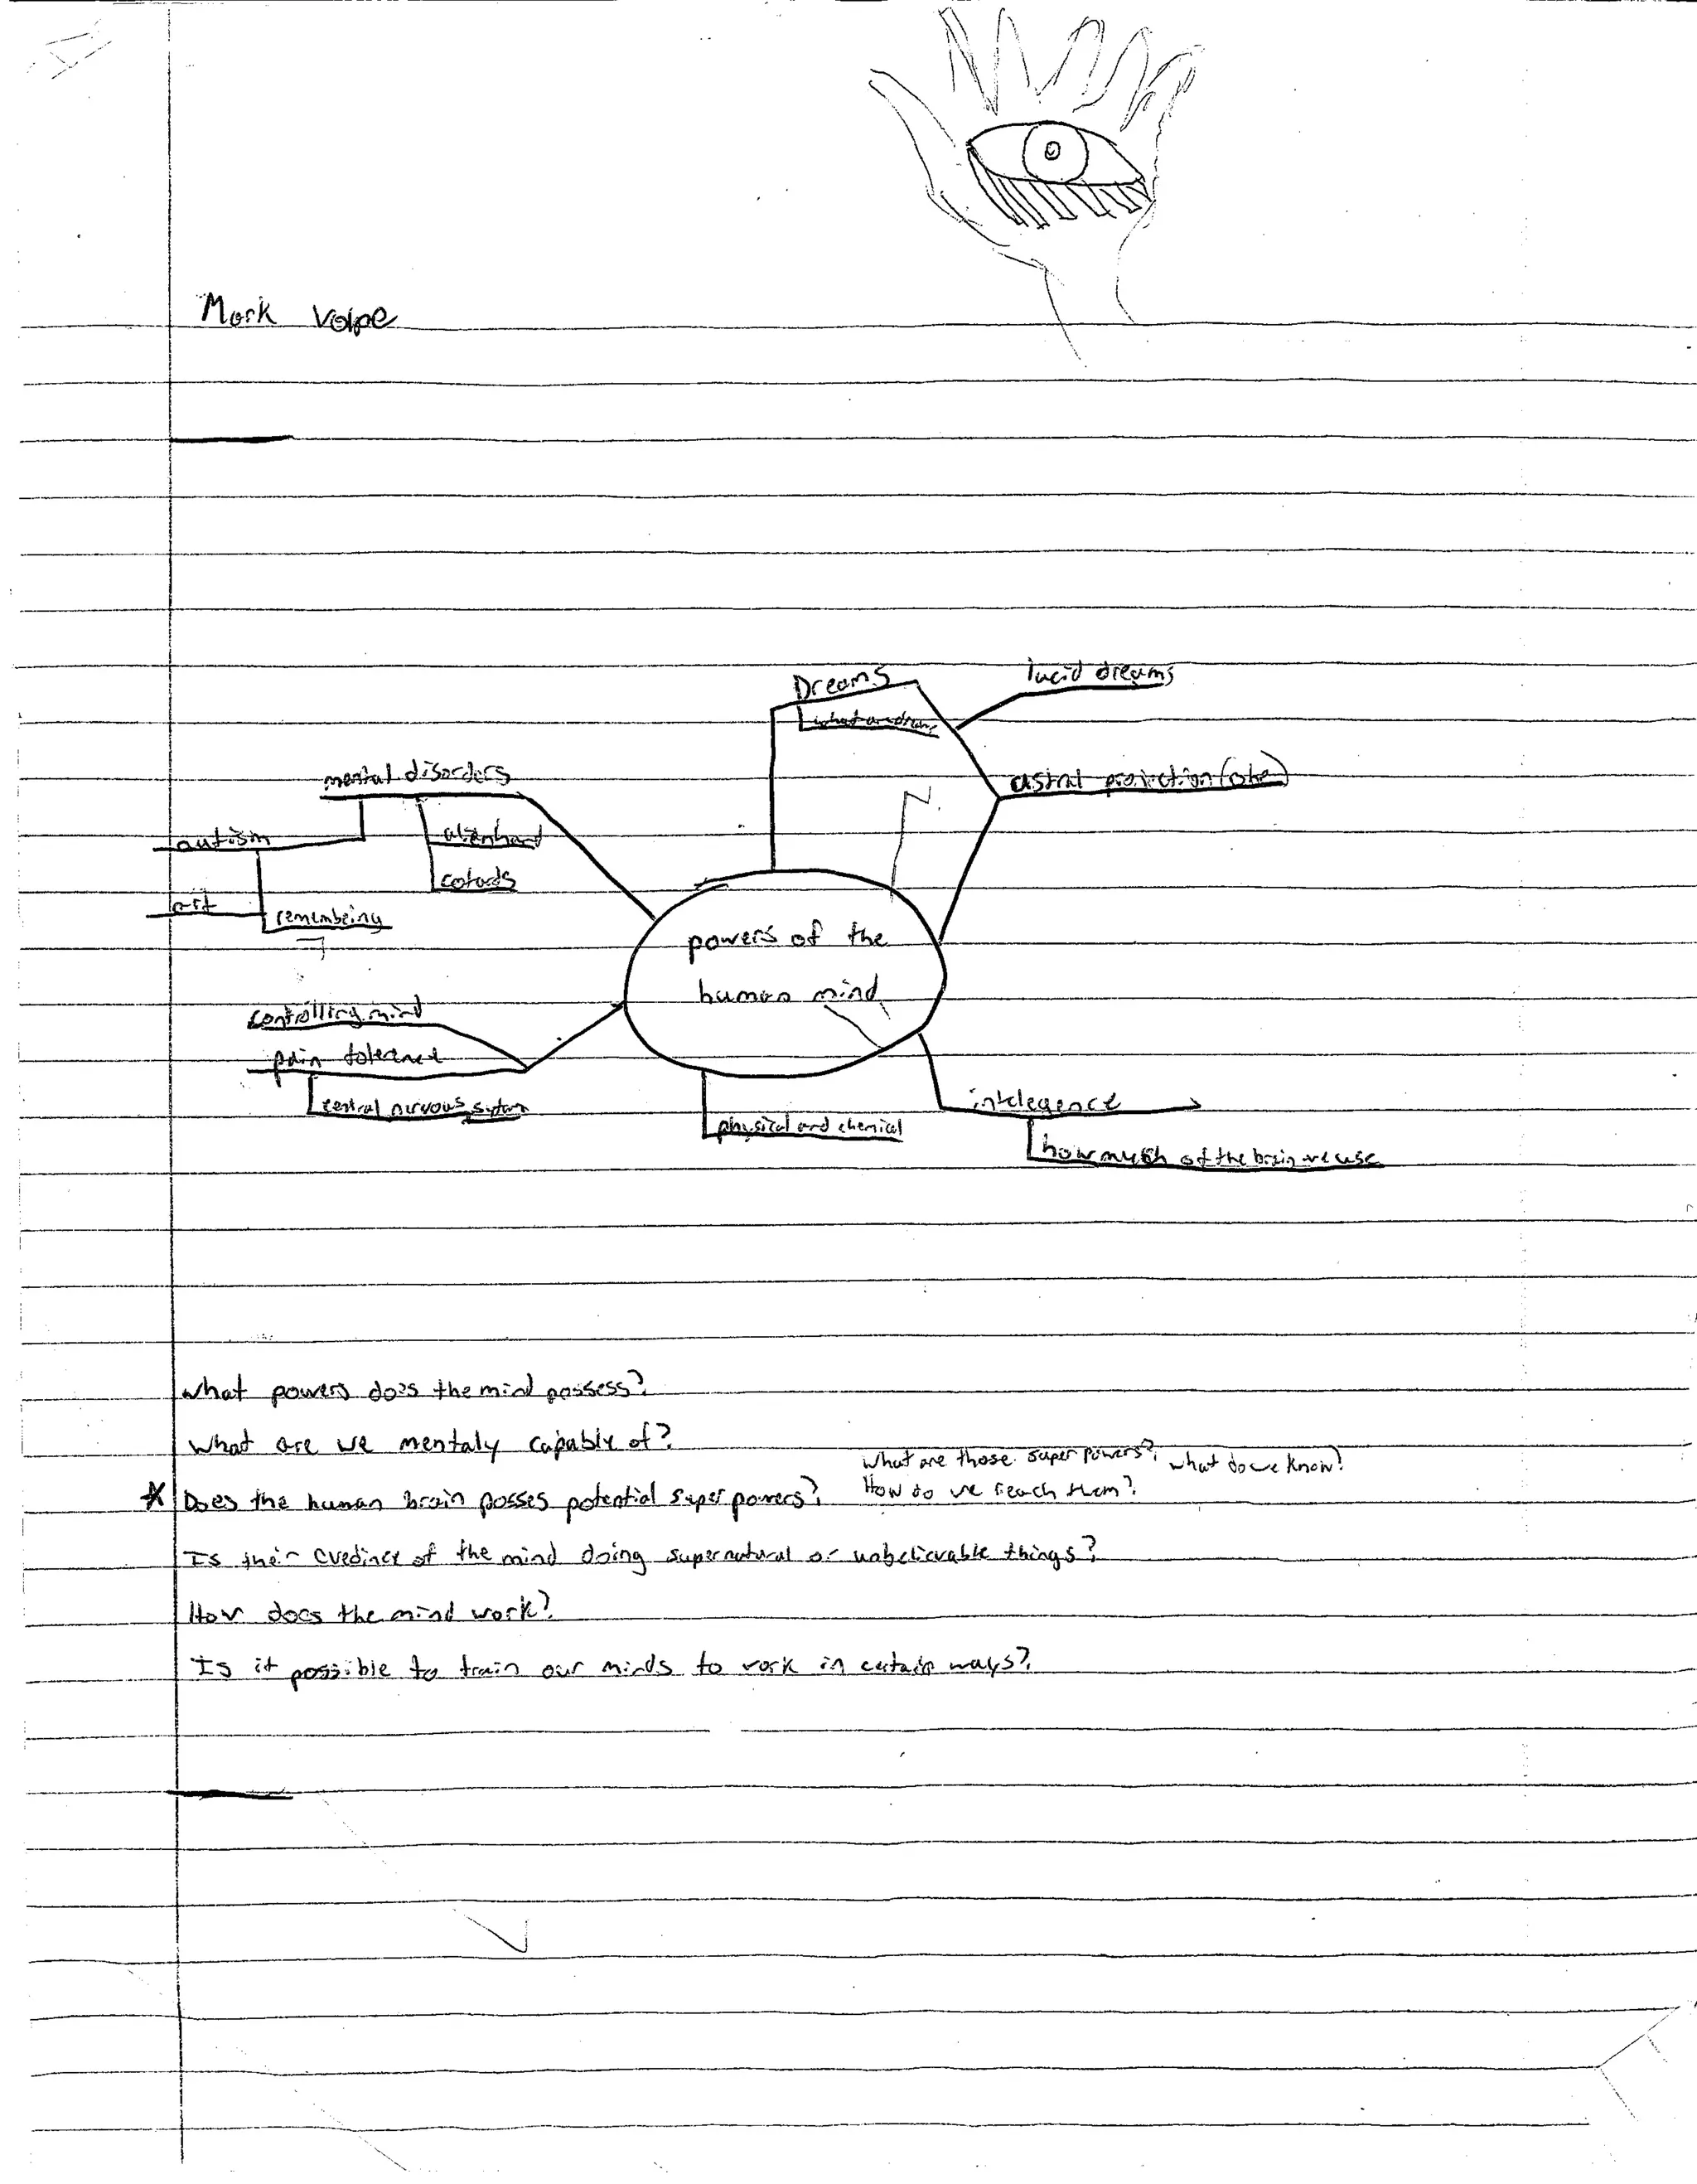 Mark Volpe
lucid dreams
Dreams
what are dreams
astral projection (obe)
mental disorders
autism
alienhand
cotards
art
remembeing
powers of the
human mind
controlling mind
pain tolerance
central nervous system
physical and chemical
intelegence
how much of the brain we use
What powers does the mind possess?
What are we mentaly capable of?
What are those super powers? what do we know?
* Does the human brain posses potential super powers? How do we reach them?
Is their evedince of the mind doing supernatural or unbelievable things?
How does the mind work?
Is it possible to train our minds to work in certain ways?